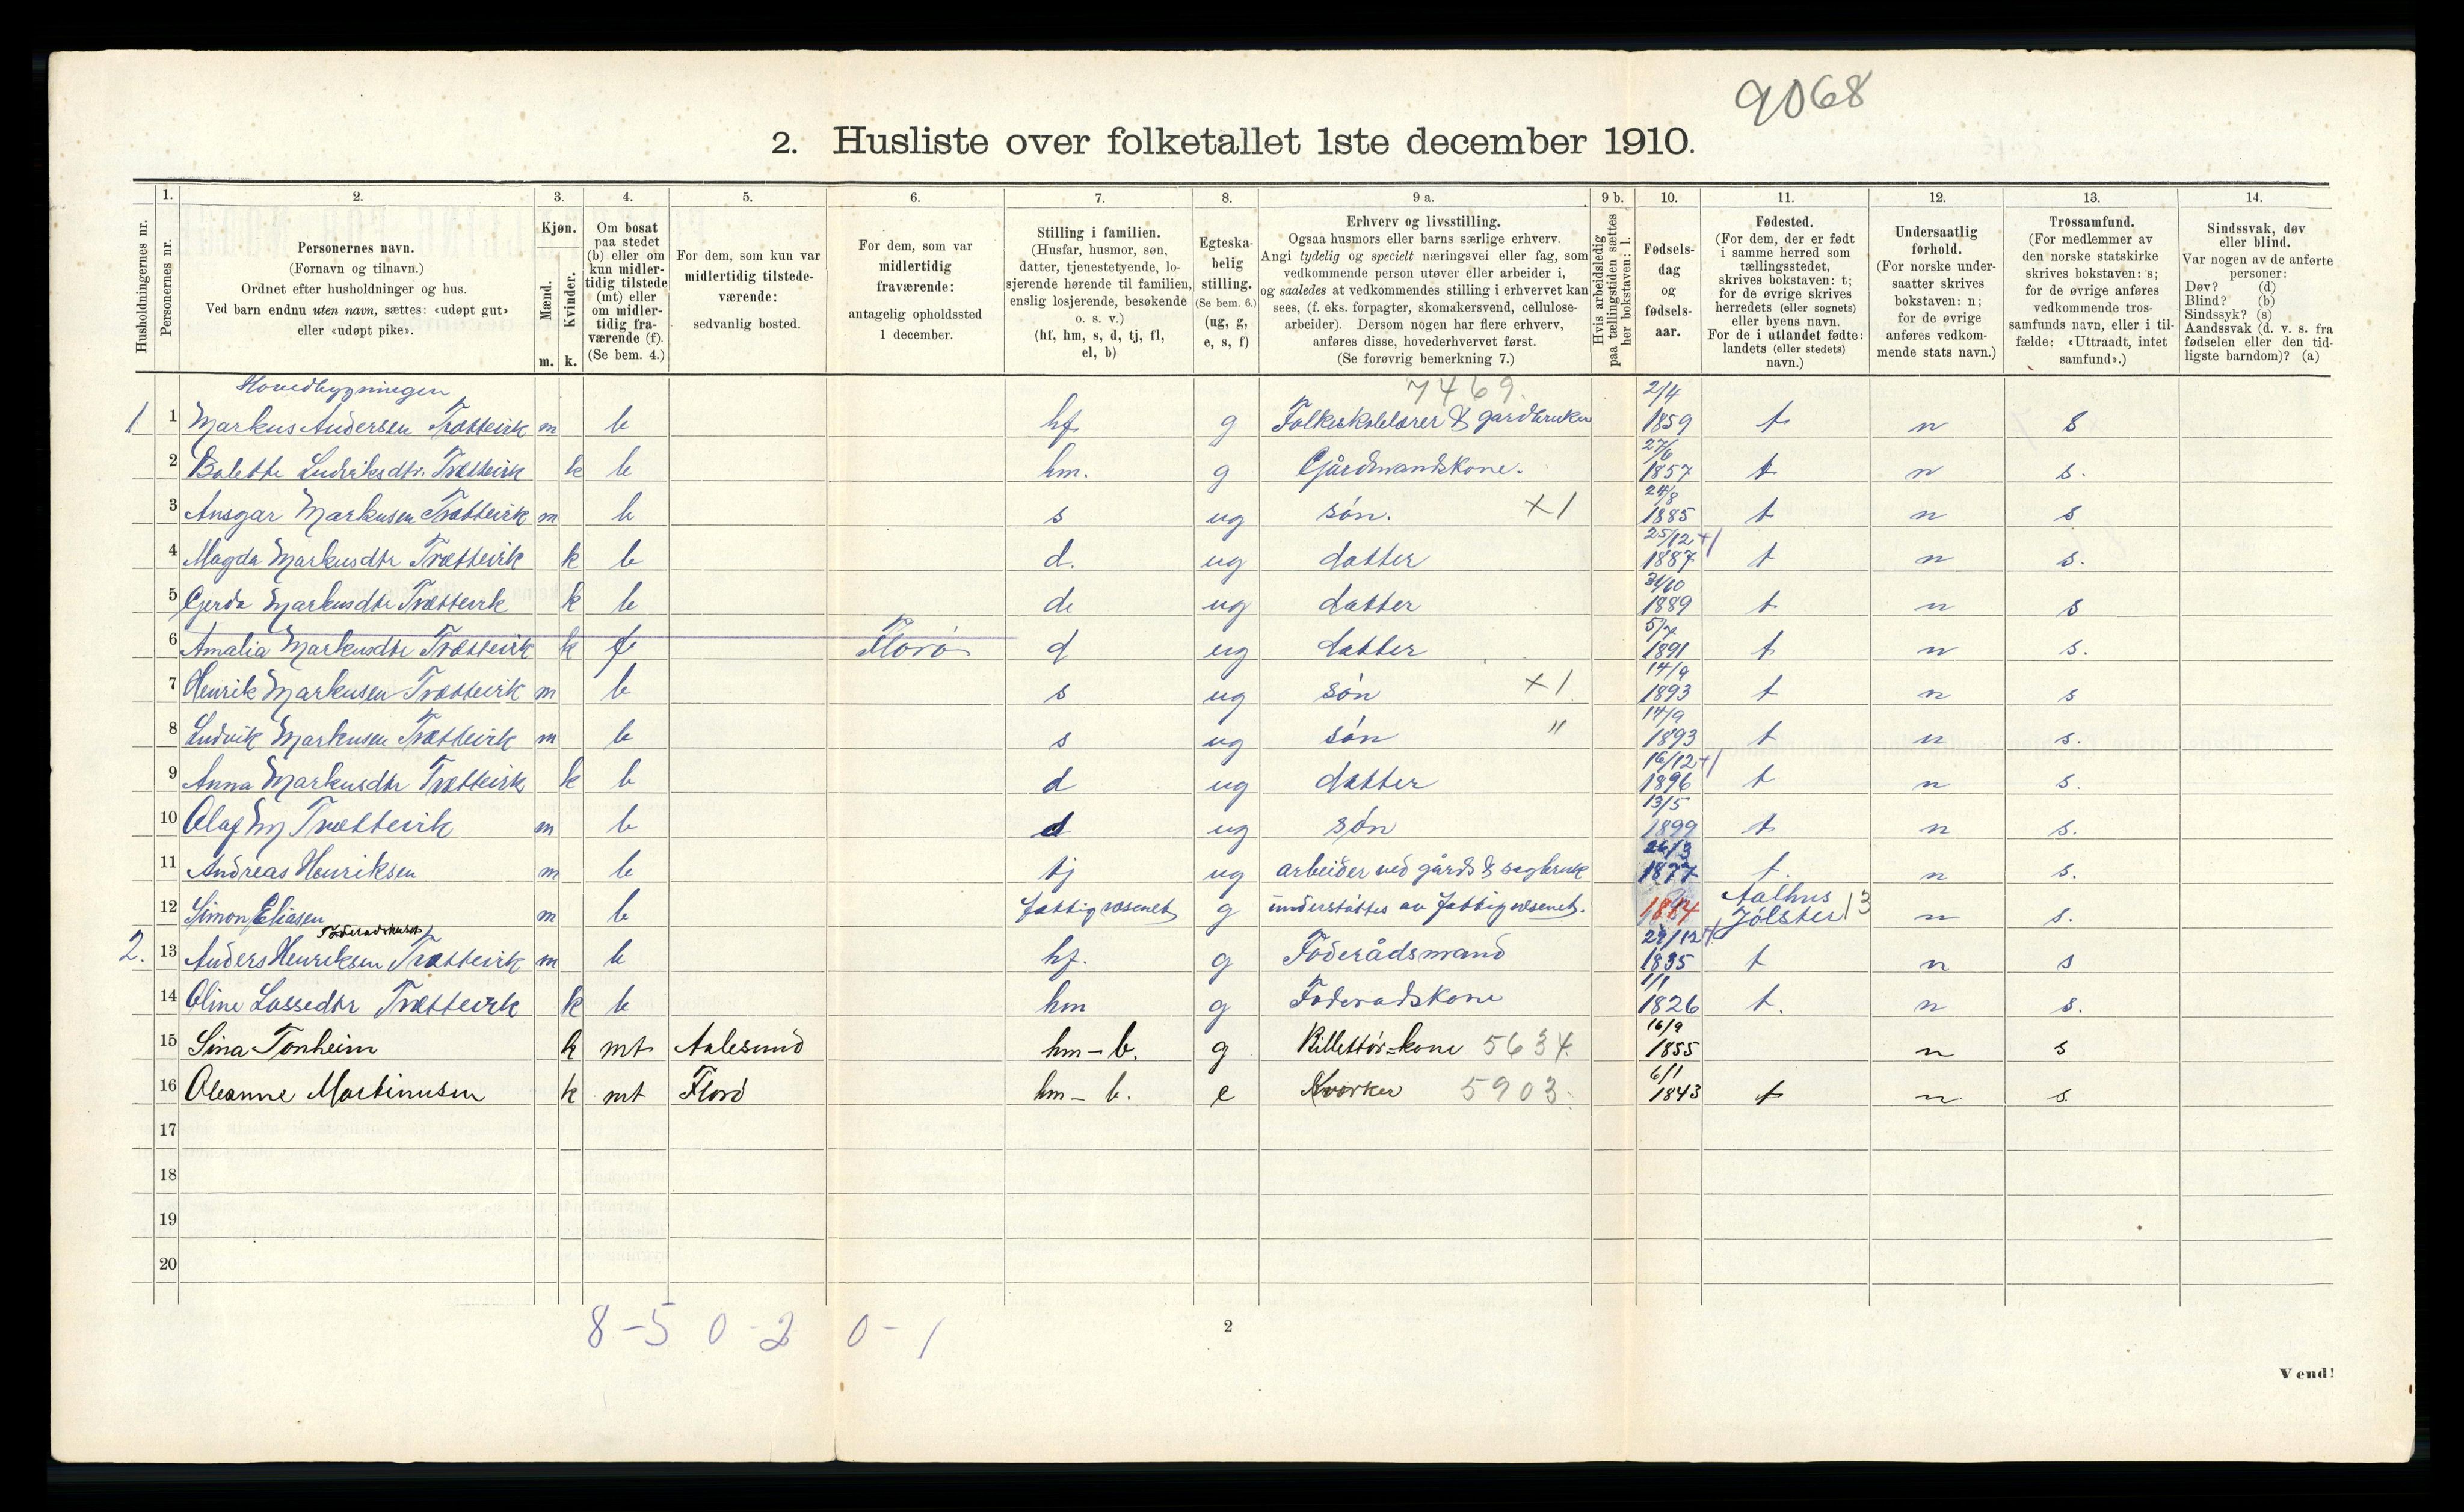 9068
2. Husliste over folketallet 1ste december 1910.
Husholdningernes nr.
1.
Personernes nr.
2.
Personernes navn.
(Fornavn og tilnavn.)
Ordnet efter husholdninger og hus.
Ved barn endnu uten navn, sættes: «udøpt gut»
eller «udøpt pike».
3.
Kjøn.
Mænd.
Kvinder.
m. k.
4.
Om bosat
paa stedet
(b) eller om
kun midler-
tidig tilstede
(mt) eller
om midler-
tidig fra-
værende (f).
(Se bem. 4.)
5.
For dem, som kun var
midlertidig tilstede-
værende:
sedvanlig bosted.
6.
For dem, som var
midlertidig
fraværende:
antagelig opholdssted
1 december.
7.
Stilling i familien.
(Husfar, husmor, søn,
datter, tjenestetyende, lo-
sjerende hørende til familien,
enslig losjerende, besøkende
o. s. v.)
(hf, hm, s, d, tj, fl,
el, b)
8.
Egteska-
belig
stilling.
(Se bem. 6.)
(ug, g,
e, s, f)
9 a.
Erhverv og livsstilling.
Ogsaa husmors eller barns særlige erhverv.
Angi tydelig og specielt næringsvei eller fag, som
vedkommende person utøver eller arbeider i,
og saaledes at vedkommendes stilling i erhvervet kan
sees, (f. eks. forpagter, skomakersvend, cellulose-
arbeider). Dersom nogen har flere erhverv,
anføres disse, hovederhvervet først.
(Se forøvrig bemerkning 7.)
9 b.
Hvis arbeidsledig
paa tællingstiden sættes
her bokstaven: l.
10.
Fødsels-
dag
og
fødsels-
aar.
11.
Fødested.
(For dem, der er født
i samme herred som
tællingsstedet,
skrives bokstaven: t;
for de øvrige skrives
herredets (eller sognets)
eller byens navn.
For de i utlandet fødte:
landets (eller stedets)
navn.)
12.
Undersaatlig
forhold.
(For norske under-
saatter skrives
bokstaven: n;
for de øvrige
anføres vedkom-
mende stats navn.)
13.
Trossamfund.
(For medlemmer av
den norske statskirke
skrives bokstaven: s;
for de øvrige anføres
vedkommende tros-
samfunds navn, eller i til-
fælde: «Uttraadt, intet
samfund».)
14.
Sindssvak, døv
eller blind.
Var nogen av de anførte
personer:
Døv? (d)
Blind? (b)
Sindssyk? (s)
Aandssvak (d. v. s. fra
fødselen eller den tid-
ligste barndom)? (a)
Hovedbygningen 7469.
1 1 Markus Andersen Trættevik m b hf g Folkeskolelærer & gardbruker 2/4 1859 t n s
2 Balette Ludviksdtr. Trættevik k b hm. g Gårdmandskone. 27/6 1857 t n s.
3 Ansgar Markusen Trættevik m b s ug søn. x 1 24/8 1885 t n s
4 Magda Markusdtr Trættevik k b d. ug datter 25/12 +1 1887 t n s.
5 Gjerda Markusdtr Trættevik k b d. ug datter 31/10 1889 t n s
6 Amalia Markusdtr Trættevik k f Florø d ug datter 5/7 1891 t n s.
7 Henrik Markusen Trættevik m b s ug søn x 1. 14/9 1893 t n s
8 Ludvik Markusen Trættevik m b s ug søn " 14/9 1893 t n s.
9 Anna Markusdtr Trættevik k b d ug datter 16/12 +1 1896 t n s.
10 Olaf M Trættevik m b d ug søn 13/5 1899 t n s.
11 Andreas Henriksen m b tj ug arbeider ved gårds & sagbruk 26/3 1877 t. n s.
12 Simon Eliasen m b fattigvæsenet g understøttes av fattigvæsenet. 1884 Aalhus Jølster 13 n s.
Føderådshuset
2. 13 Anders Henriksen Trættevik m b hf. g Føderådsmand 29/12 +1 1835 t n s
14 Oline Lassedtr Trættevik k b hm g Føderadskone 1/1 1826 t. n s.
15 Sina Tonheim k mt Aalesund hm - b. g Billettør=kone 5634. 16/9 1855 n s
16 Oleanne Martinusen k mt Florø hm - b. e 5903. 6/1 1843 t n s.
17
18
19
20
8 - 5 0 - 2 0 - 1
2
Vend!